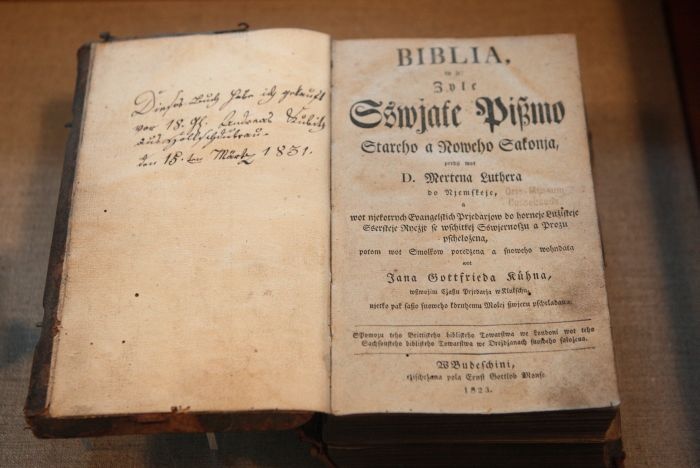 Dieses Buch habe ich gekauft
vor 18 Andreas Kubitz
aus
den 15.ten Märtz 1831.
BIBLIA,
to je:
Zyle
Sswjate Pißmo
Stareho a Noweho Sakonja,
predy wot
D. Mertena Luthera
do Njemskeje,
a
wot njekotrych Evangelskich Prjedarjow do horneje Lużiskeje
Sserskeje Ryczje se wschitkej Sswjernosżu a Prozu
pschelożena,
potom wot Smolkow poredżena a snoweho wohndata
wot
Jana Gottfrieda Kühna,
Czaßu Prjedarja w Klukschu,
njetko pak snoweho
SPomozu teho Brittiskeho bibliskeho Towarstwa we Londoni wot teho
Sachsenskeho bibliskeho Towarstwa we Dreżdżanach snoweho salożena.
WBudeschini,
cżischczana pola Ernst Gottlob Monse
1823.